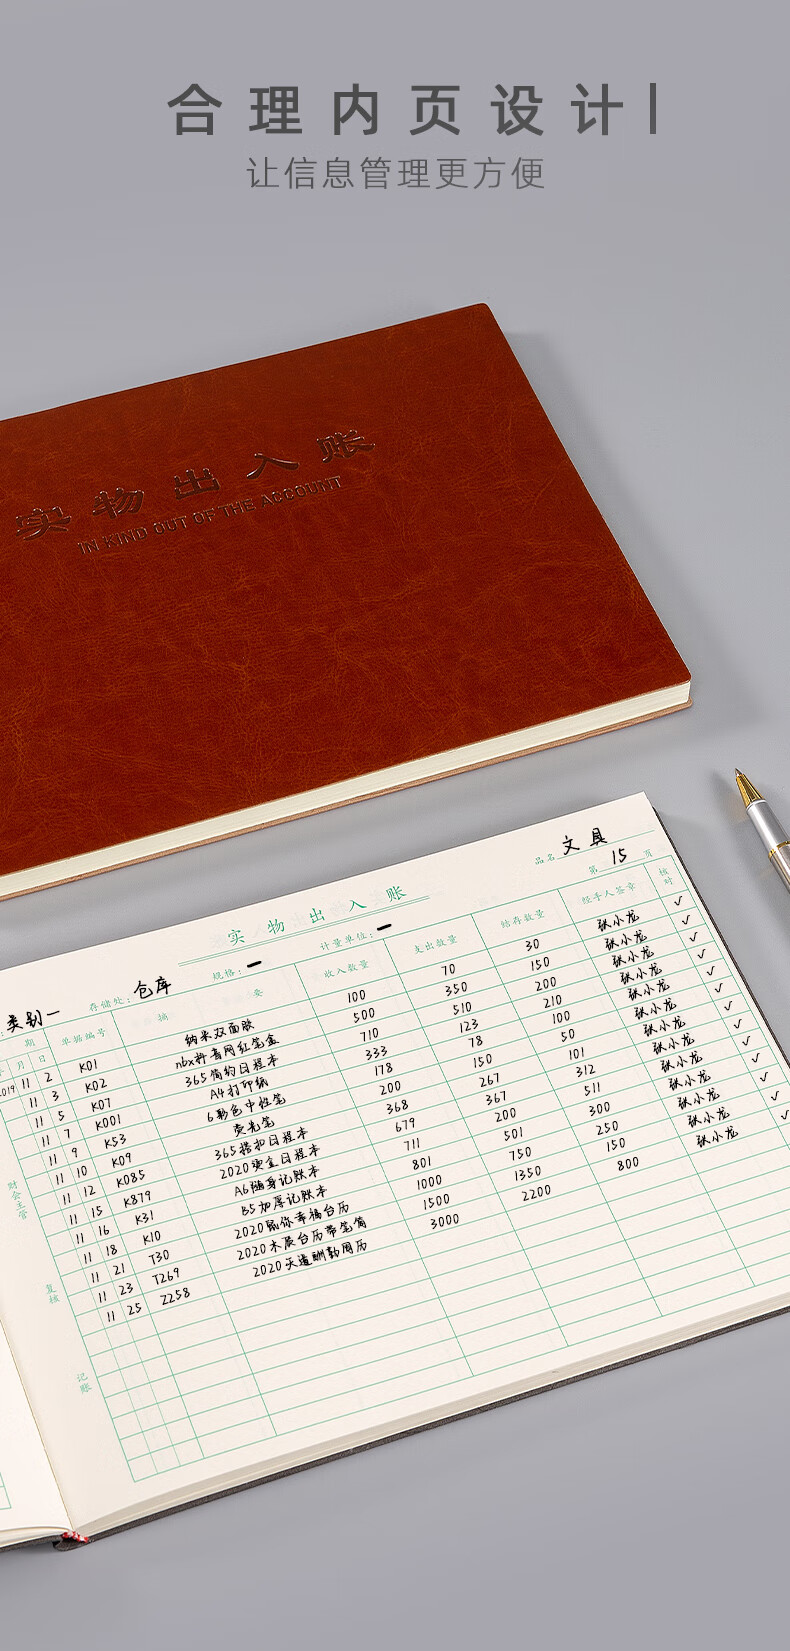 合理内页设计
让信息管理更方便
实物出入账
IN KIND OUT OF THE ACCOUNT
品名 文具
第 15 页
实物出入账
类别一 存储处: 仓库 规格: 一 计量单位: 一
期 单据编号 摘要 收入数量 支出数量 结存数量 经手人签章 核对
月 日
2019 11 2 K01 纳米双面胶 100 70 30 张小龙 ✓
11 3 K02 nbx抖音网红笔盒 500 350 150 张小龙 ✓
11 5 K07 365简约日程本 710 510 200 张小龙 ✓
11 7 K001 A4打印纸 333 123 210 张小龙 ✓
11 9 K53 6彩色中性笔 178 78 100 张小龙 ✓
11 10 K09 荧光笔 200 150 50 张小龙 ✓
11 12 K085 365搭扣日程本 368 267 101 张小龙 ✓
11 15 K879 2020烫金日程本 679 367 312 张小龙 ✓
11 16 K31 A6随身记账本 711 200 511 张小龙 ✓
11 18 K10 B5加厚记账本 801 501 300 张小龙 ✓
11 21 T30 2020鼠你幸福台历 1000 750 250
11 23 T269 2020木质台历带笔筒 1500 1350 150
11 25 Z258 2020天道酬勤周历 3000 2200 800
财会主管
复核
记账